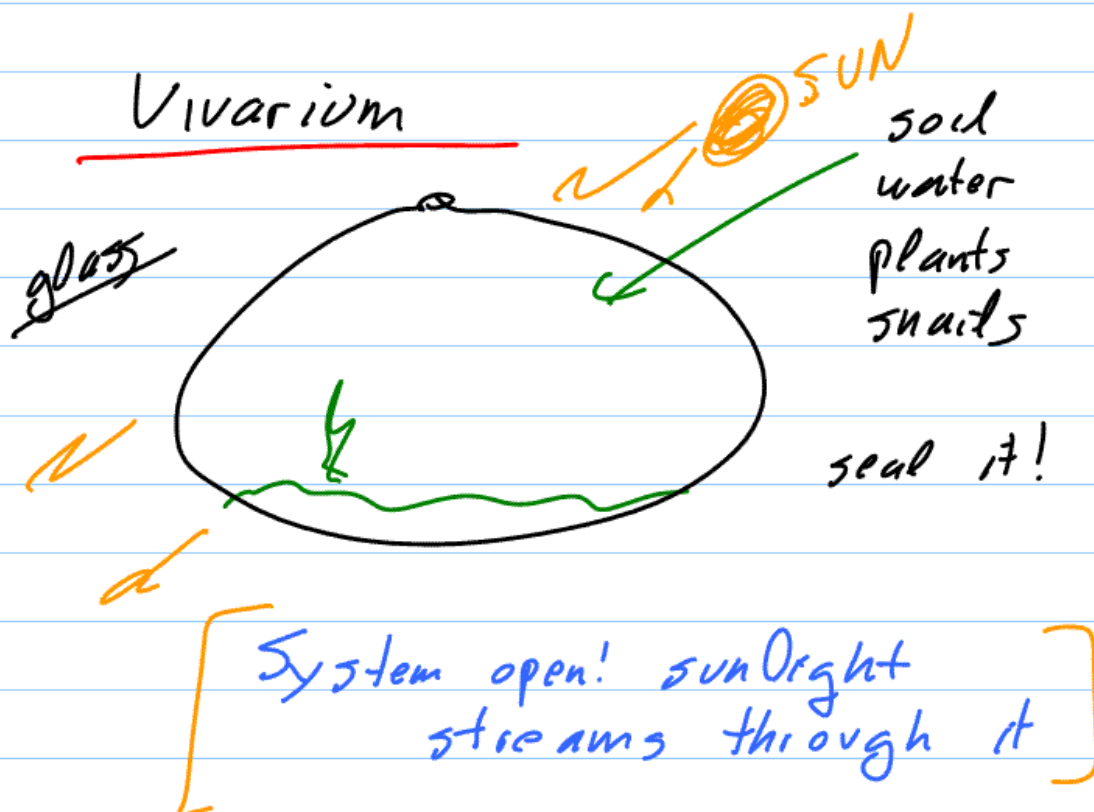 Vivarium
SUN
soil
water
plants
snails
glass
seal it!
System open! sunlight
streams through it